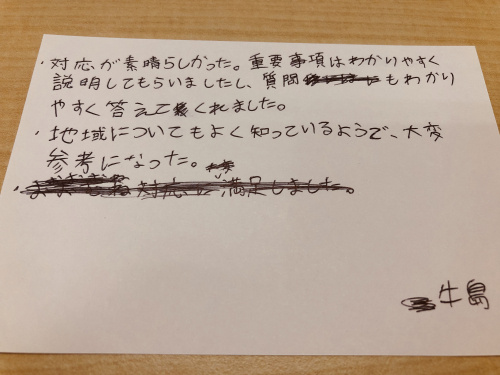 ・対応が素晴らしかった。重要事項はわかりやすく
説明してもらいましたし、質問もわかり
やすく答えてくれました。
・地域についてもよく知っているようで、大変
参考になった。
・対応に満足しました。
牛島